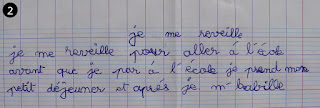 2
je me reveille
je me reveille pour aller à l'école
avant que je par à l'école je prend mon
petit déjeuner et aprés je m'babille